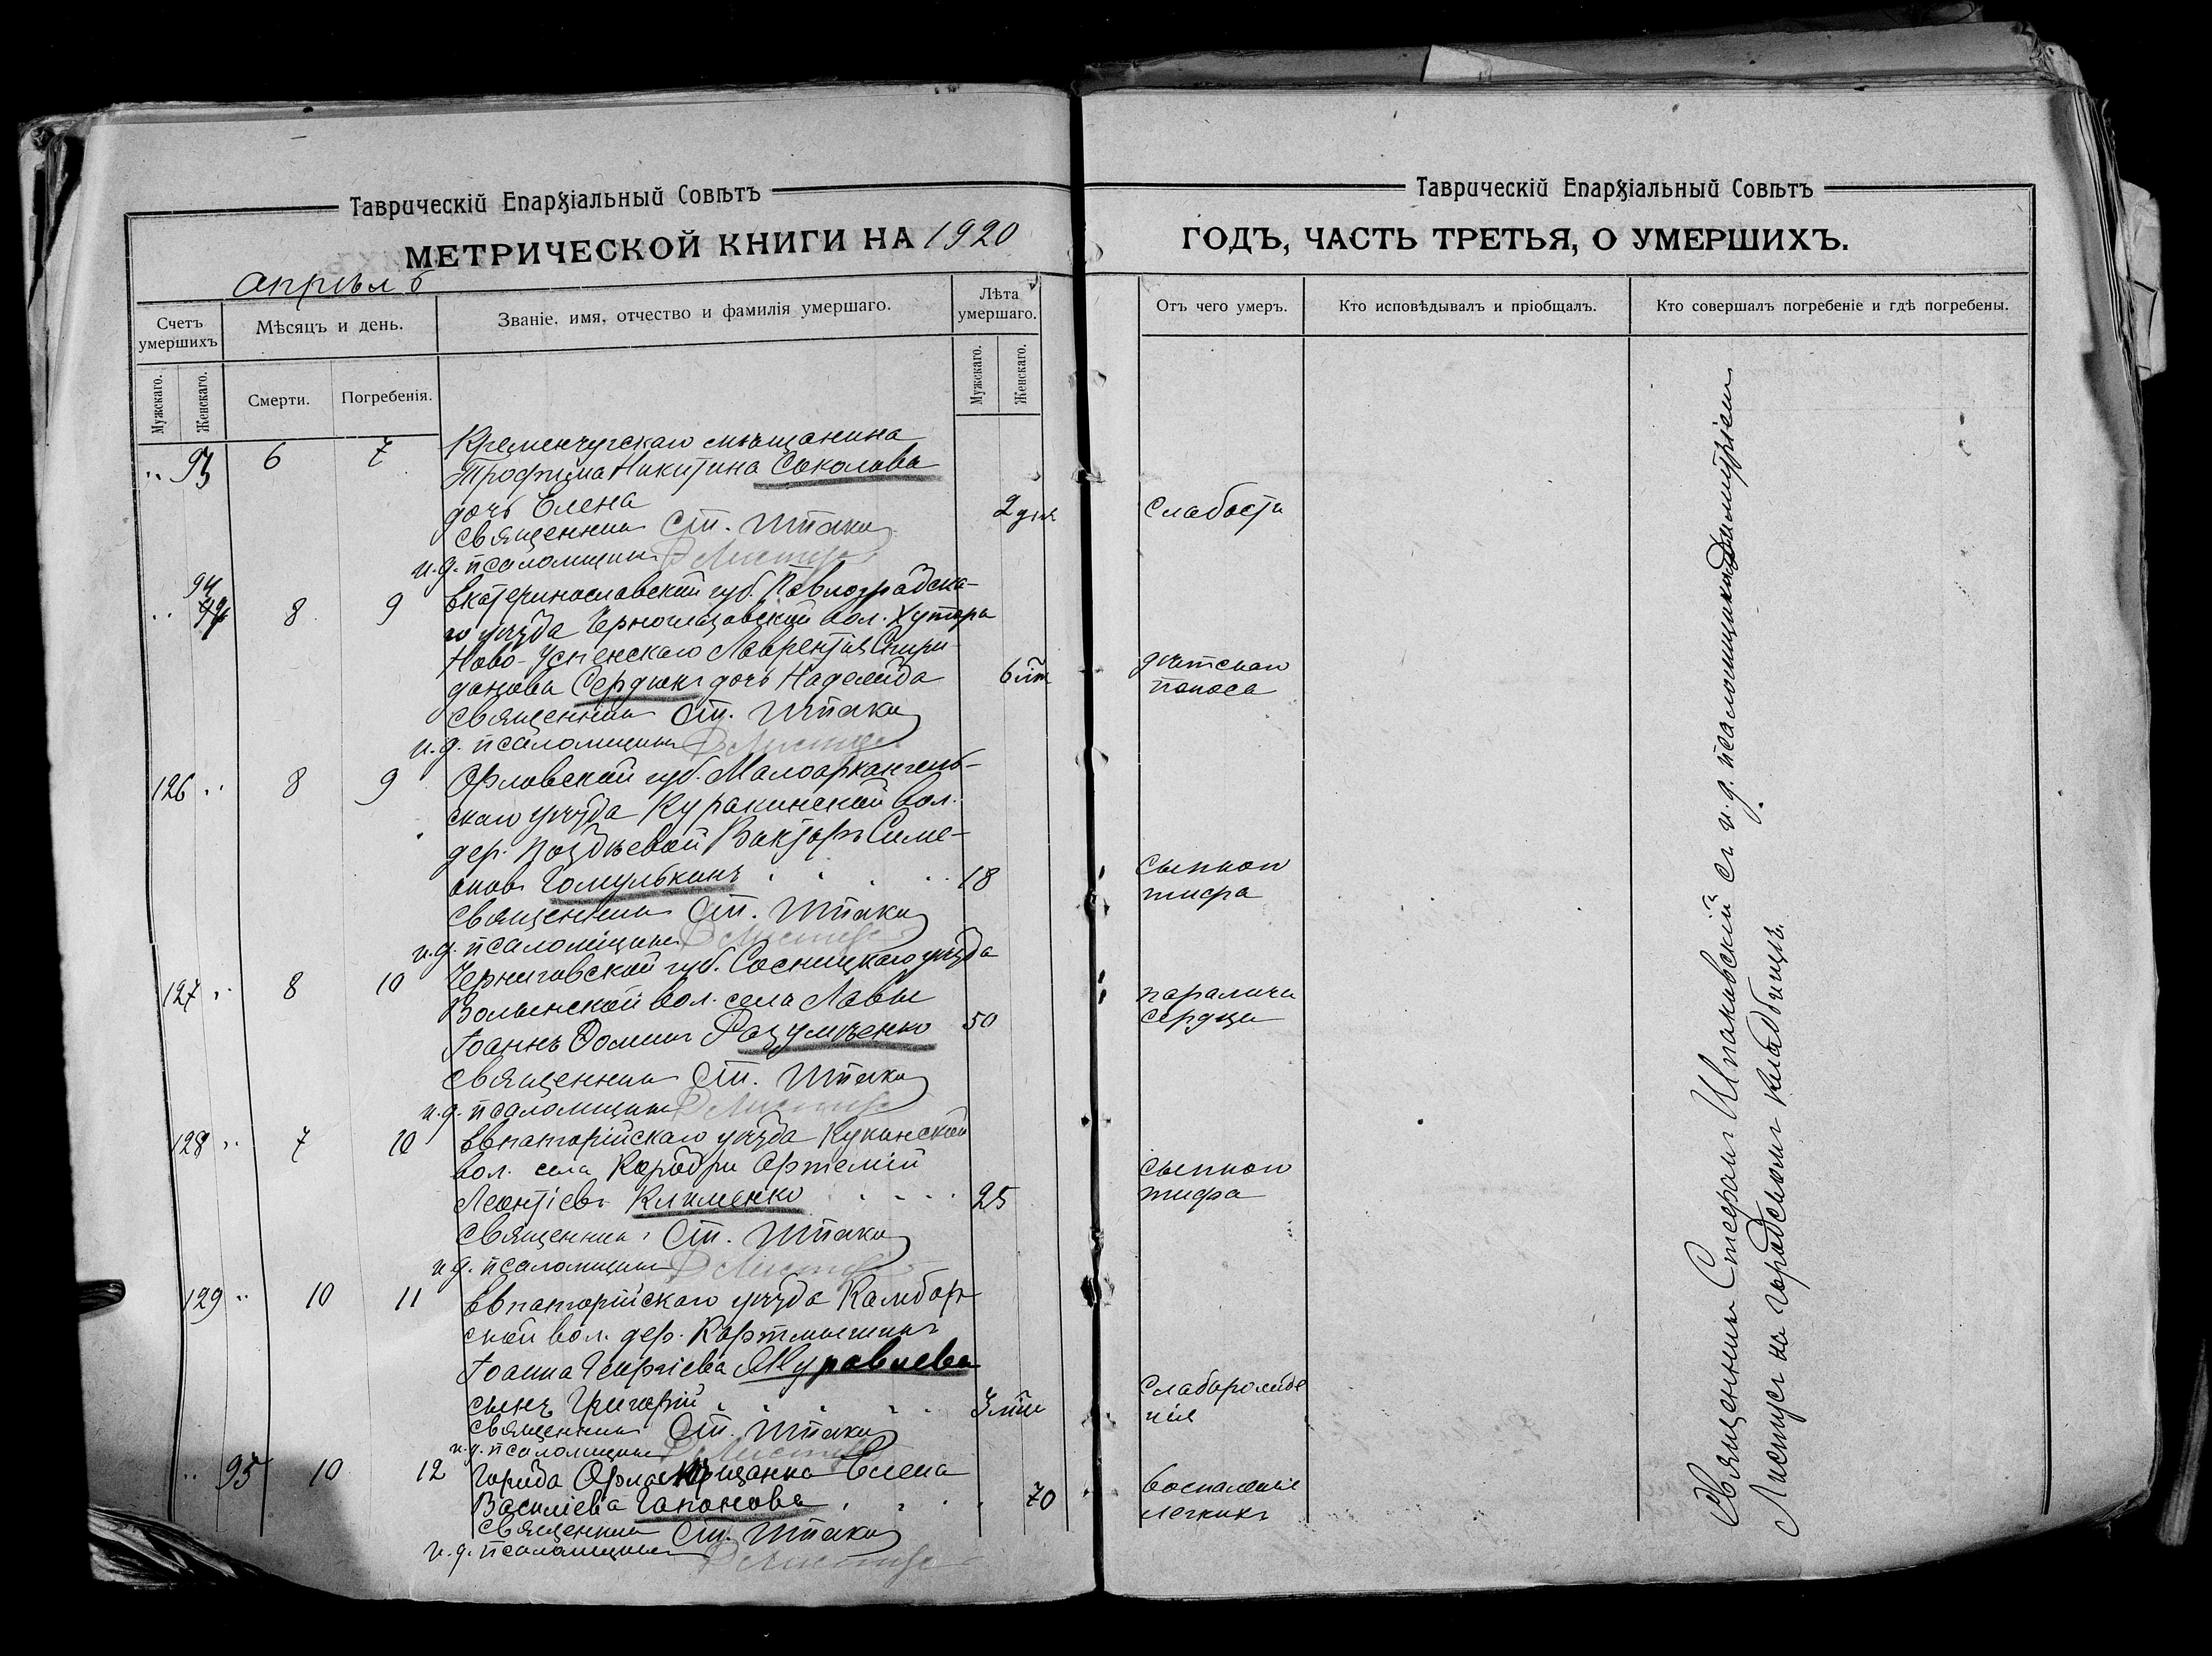 Таврическій Епархіальный Совѣтъ
МЕТРИЧЕСКОЙ КНИГИ НА 1920
Апрѣль
Счетъ умершихъ
Мѣсяцъ и день.
Званіе, имя, отчество и фамилія умершаго.
Лѣта умершаго.
Мужскаго.
Женскаго.
Смерти.
Погребенія.
Мужскаго.
Женскаго.
" 93 6 7 Кременчугскаго мѣщанина
Трофима Никитина Соколова
дочь Елена 2 дня
Священникъ Ст. Шпаков
и.д. псаломщика Д Листус
94
" 8 9 Екатеринославской губ. Павлоградска-
го уѣзда Черноглазовской вол. Хутора
Ново-Успенскаго Лаврентія Спири-
донова Сердюкъ дочь Надежда 6 лѣт
Священникъ Ст. Шпаков
и.д. псаломщика Д Листус
126 " 8 9 Орловской губ. Малоархангель-
скаго уѣзда Куракинской вол.
дер. Поздѣевой Викторъ Симе-
оновъ Гомулькинъ 18
Священникъ Ст. Шпаков
и.д. псаломщика Д Листус
127 " 8 10 Черниговской губ. Сосницкаго уѣзда
Волынской вол. села Лавы
Іоаннъ Фоминъ Разумѣенко 50
Священникъ Ст. Шпаков
и.д. псаломщика Д Листус
128 " 7 10 Евпаторійскаго уѣзда Кунанской
вол. села Артемій
Леонтіевъ Клименко 25
Священникъ Ст. Шпаков
и.д. псаломщика Д Листус
129 " 10 11 Евпаторійскаго уѣзда Камбар-
ской вол. дер. Картмышикъ
Іоанна Георгіева Журавлева
сынъ Григорій
Священникъ Ст. Шпаков
и.д. псаломщика Д Листус
" 95 10 12 Города Орла мѣщанка Елена
Василіева Гапонова 70
Священникъ Ст. Шпаков
и.д. псаломщика Д Листус
Таврическій Епархіальный Совѣтъ
ГОДЪ, ЧАСТЬ ТРЕТЬЯ, О УМЕРШИХЪ.
Отъ чего умеръ.
Кто исповѣдывалъ и пріобщалъ.
Кто совершалъ погребеніе и гдѣ погребены.
Слабости
дѣтскаго
поноса
Сыпного
тифа
паралича
сердца
Сыпного
тифа
Слаборожде
нія
Воспаленіе
легкихъ
Священникъ Стефанъ Шпаковскій съ и.д. псаломщика Димитріемъ
Листусъ на городскомъ кладбищѣ.